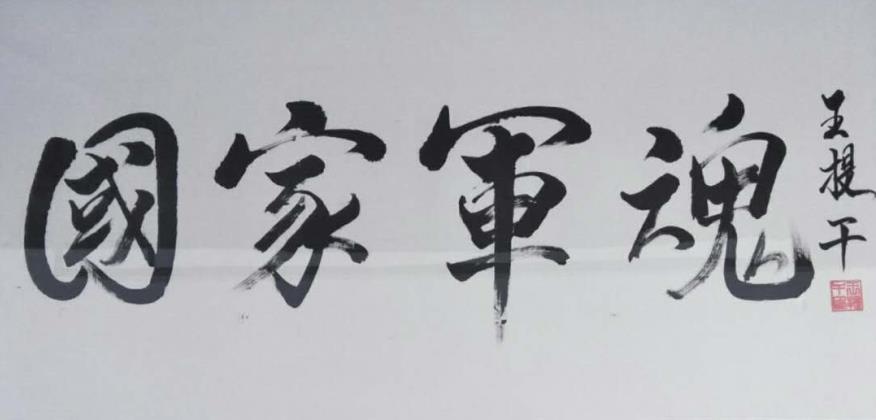 國家軍魂
王提干